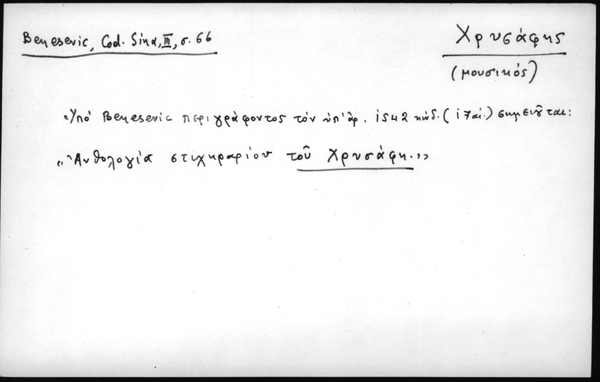 Benesevic, Cod. Sina, III, σ. 66
Χρυσάφης
(μουσικός)
Ὑπό Benesevic περιγράφοντος τόν ὑπ' ἀρ. 1542 κώδ. (17 αἰ.) σημειοῦται:
„Ἀνθολογία στιχηραρίου τοῦ Χρυσάφη."